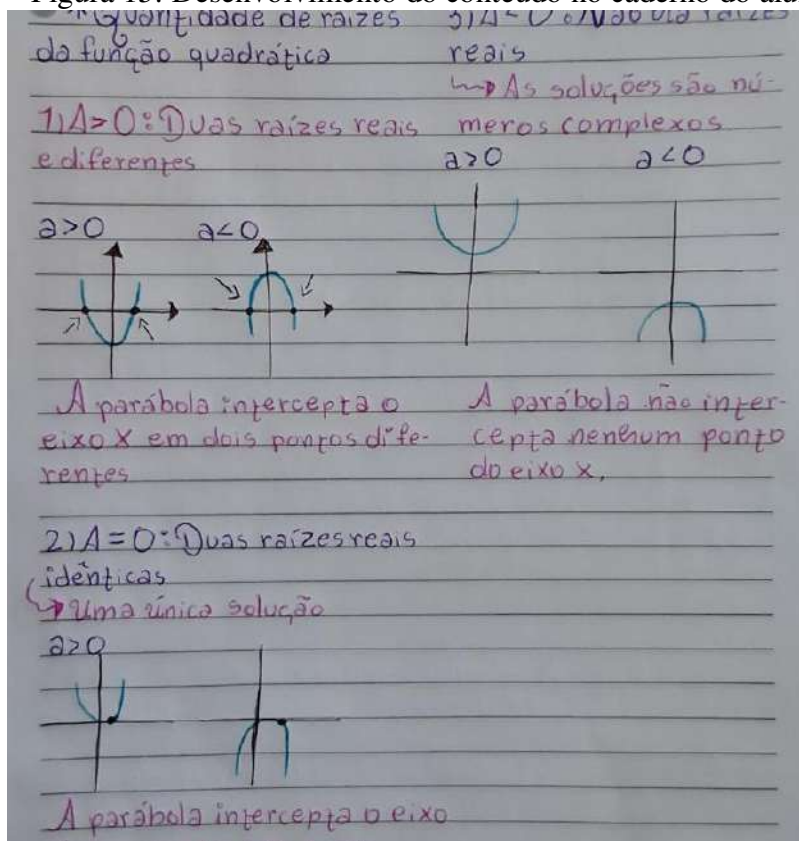 Figura 15: Desenvolvimento do conteúdo no caderno do alu
Quantidade de raízes
da função quadrática
1) Δ>0: Duas raízes reais
e diferentes
a>0 a<0
A parábola intercepta o
eixo X em dois pontos dife-
rentes
2) Δ=0: Duas raízes reais
idênticas
↳ Uma única solução
a>0
A parábola intercepta o eixo
3) Δ<0: Não há raízes
reais
↳ As soluções são nú-
meros complexos
a>0 a<0
A parábola não inter-
cepta nenhum ponto
do eixo x.